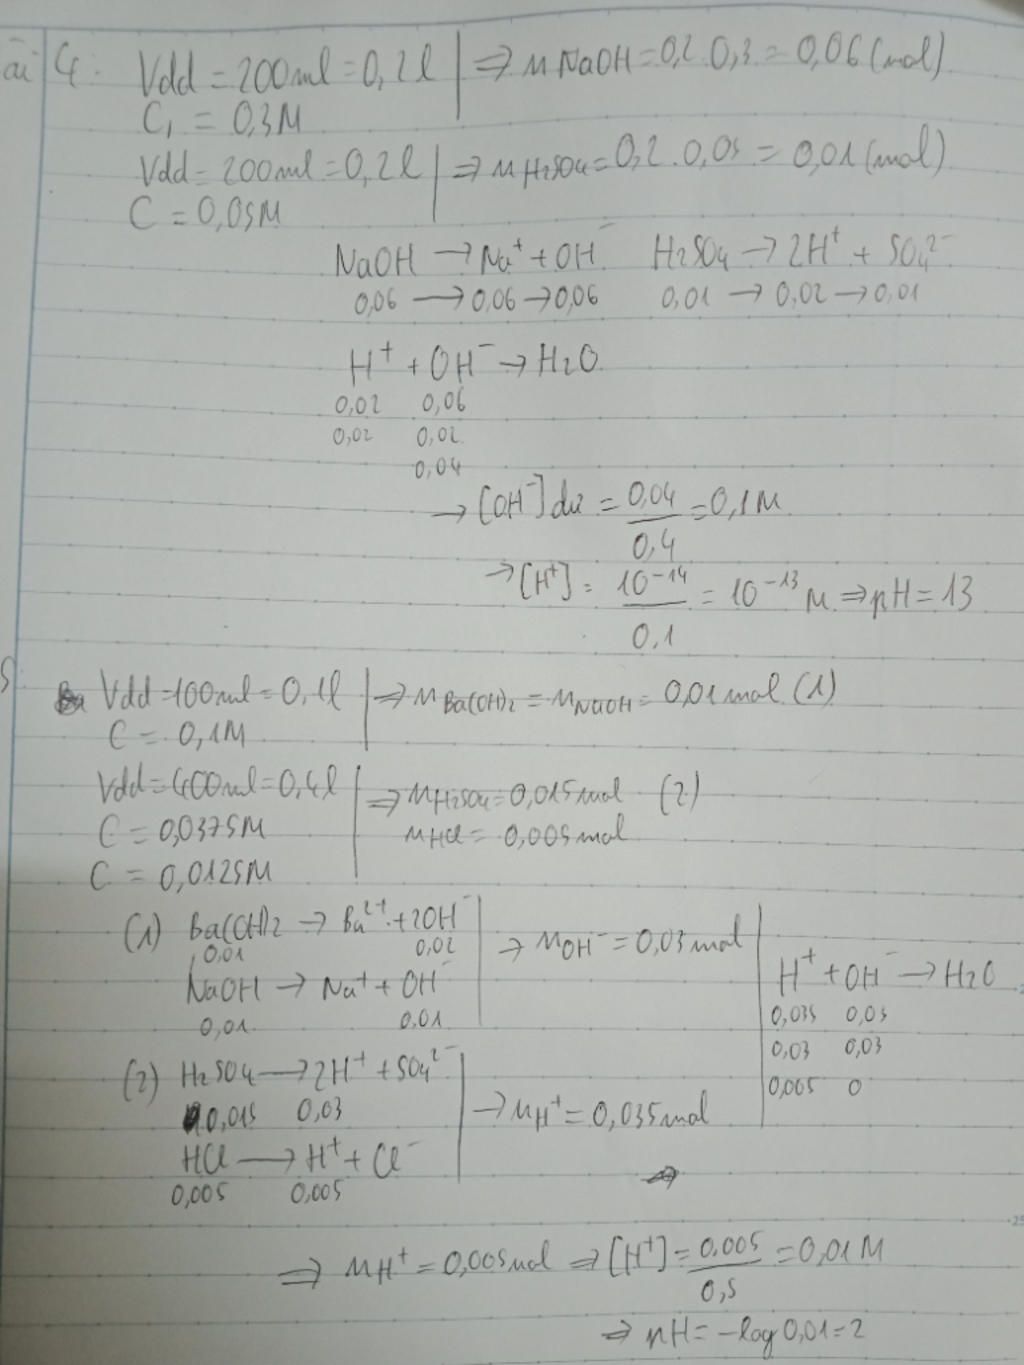 ài 4: Vdd = 200ml = 0,2l ⇒ nNaOH = 0,2.0,3 = 0,06 (mol)
C₁ = 0,3M
Vdd = 200ml = 0,2l ⇒ nH₂SO₄ = 0,2.0,05 = 0,01 (mol)
C = 0,05M
NaOH → Na⁺ + OH⁻ H₂SO₄ → 2H⁺ + SO₄²⁻
0,06 → 0,06 → 0,06 0,01 → 0,02 → 0,01
H⁺ + OH⁻ → H₂O
0,02 0,06
0,02 0,02
0,04
→ [OH⁻] dư = 0,04/0,4 = 0,1M
→ [H⁺] = 10⁻¹⁴/0,1 = 10⁻¹³ M ⇒ pH = 13
5 Vdd = 100ml = 0,1l ⇒ nBa(OH)₂ = nNaOH = 0,01 mol (1)
C = 0,1M
Vdd = 400ml = 0,4l ⇒ nH₂SO₄ = 0,015 mol (2)
C = 0,0375M nHCl = 0,005 mol
C = 0,0125M
(1) Ba(OH)₂ → Ba²⁺ + 2OH⁻ → nOH⁻ = 0,03 mol
0,01 0,02
NaOH → Na⁺ + OH⁻
0,01 0,01
H⁺ + OH⁻ → H₂O
0,035 0,03
0,03 0,03
0,005 0
(2) H₂SO₄ → 2H⁺ + SO₄²⁻ → nH⁺ = 0,035 mol
0,015 0,03
HCl → H⁺ + Cl⁻
0,005 0,005
⇒ nH⁺ = 0,005 mol ⇒ [H⁺] = 0,005/0,5 = 0,01M
⇒ pH = -log 0,01 = 2